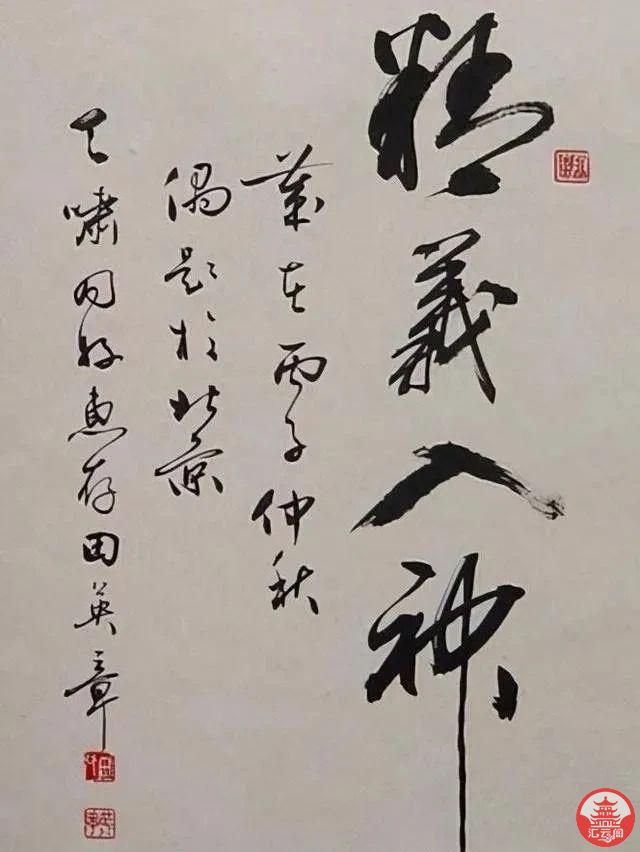 精義入神
歲在丙子仲秋
偶題於北京
天嘯同好惠存田英章
汇云阁